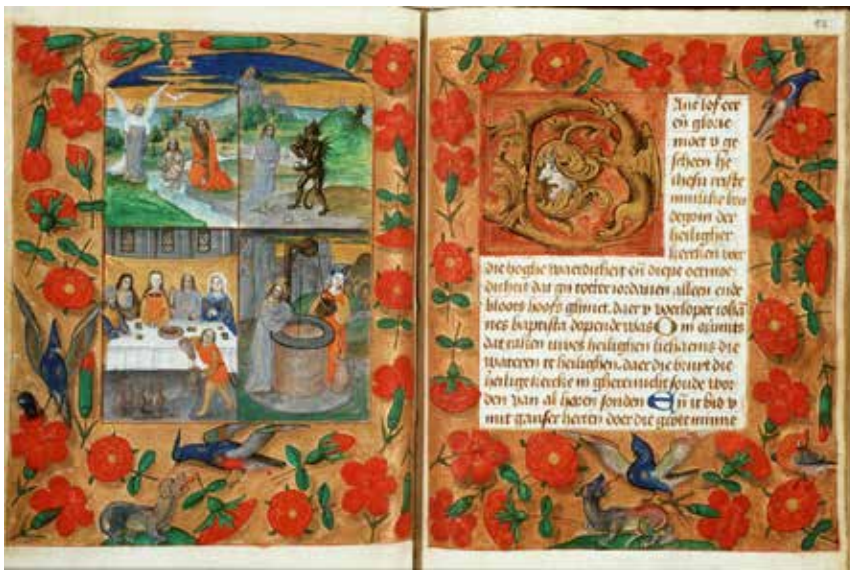 Anc lof eer
eñ glorie
moet v ge
scheen he
ihesu criste
minlike bru
degom der
heiligher
kercken voer
die hoghe waerdicheit eñ diepe oetmoe
dicheit dat gy totter iordanen alleen ende
bloots hoofs ghinct. daer v voerloper iohā
nes baptista dopende was Om
dat raken uwes heilighen lichaems die
wateren te heilighen. daer die bruyt die
heilige kercke in ghereinicht soude wor
den van al horen sonden Eñ ic bid v
mit ganser herten doer die grote minne